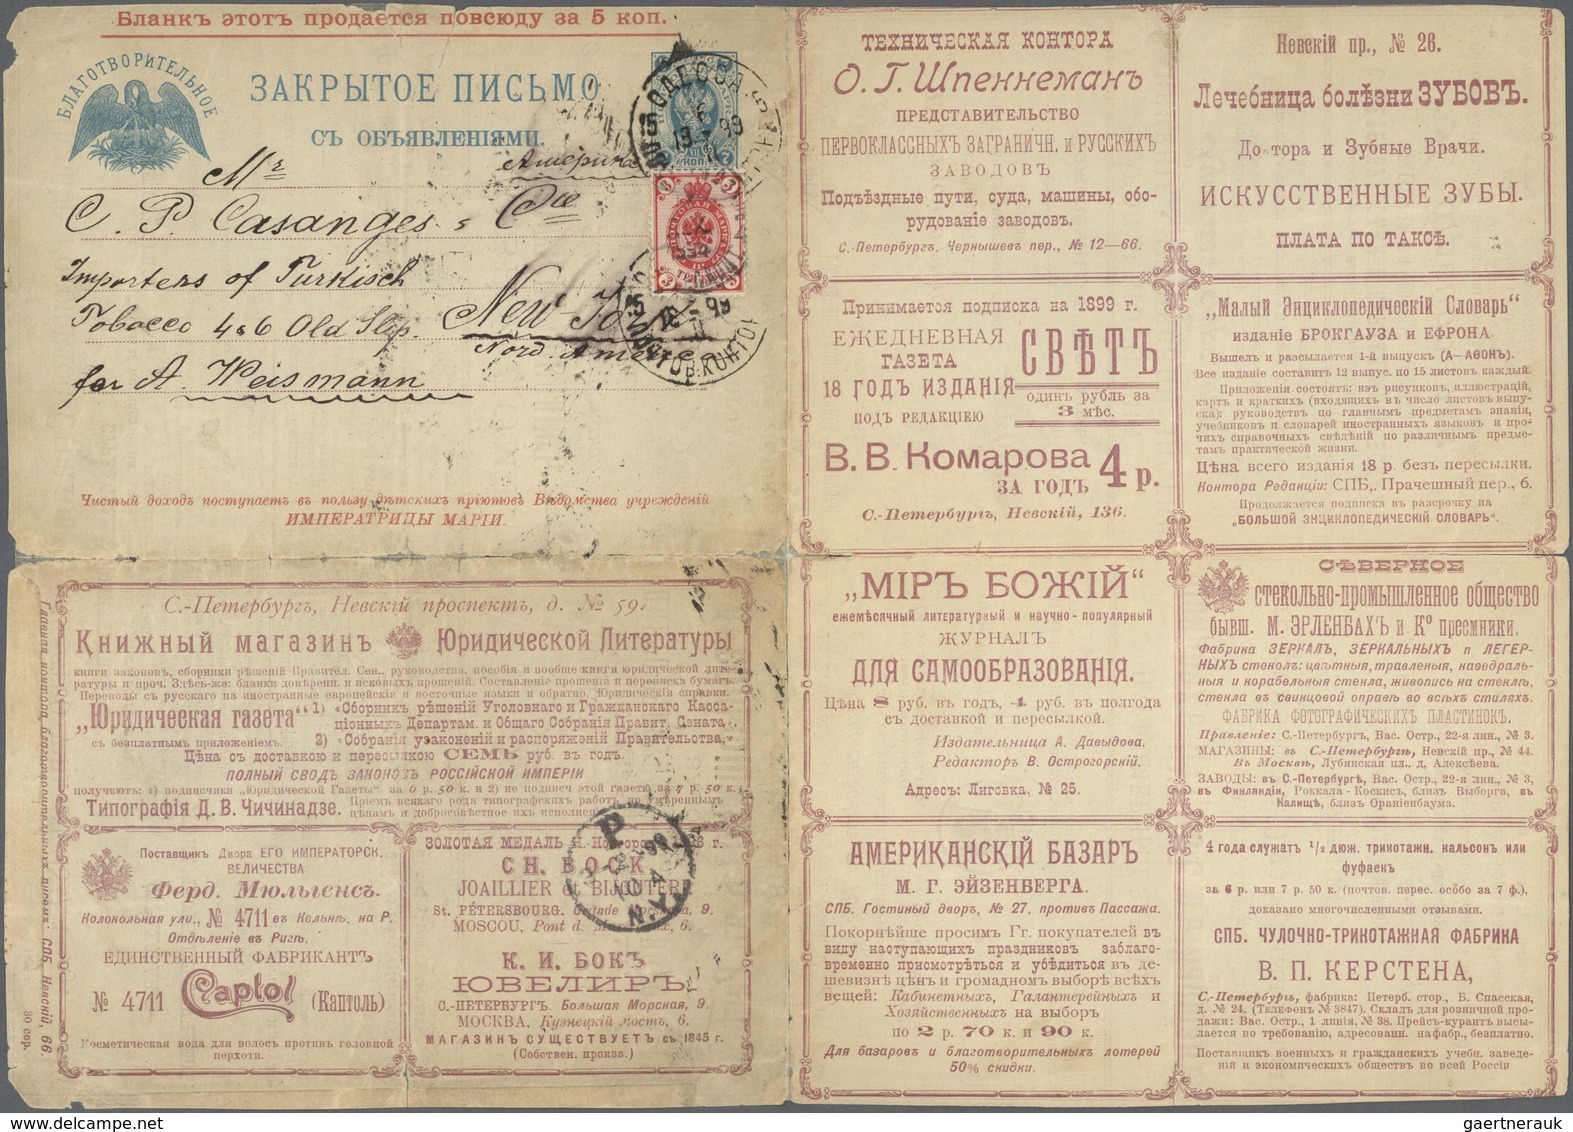 Бланкъ этотъ продается повсюду за 5 коп.
БЛАГОТВОРИТЕЛЬНОЕ
ЗАКРЫТОЕ ПИСЬМО
СЪ ОБЪЯВЛЕНІЯМИ.
Америка
Mr
C. P. Casanges & Cie
Importers of Turkisch
Tobacco 4&6 Old Slip.
New-Yo
Nord America
for A. Weismann
Чистый доходъ поступаетъ въ пользу дѣтскихъ пріютовъ Вѣдомства учрежденій
ИМПЕРАТРИЦЫ МАРІИ.
С.-Петербургъ, Невскій проспектъ, д. № 59.
Книжный магазинъ Юридической Литературы
книги законовъ, сборники рѣшеній Правител. Сен., руководства, пособія и вообще книги юридической лите-
ратуры и проч. Здѣсь-же: бланки довѣренн. и исковыхъ прошеній. Составленіе прошеній и переписка бумагъ.
Переводы съ русскаго на иностранные европейскіе и восточные языки и обратно. Юридическія справки.
„Юридическая газета“ 1) «Сборникъ рѣшеній Уголовнаго и Гражданскаго Касса-
ціонныхъ Департам. и Общаго Собранія Правит. Сената
съ безплатнымъ приложеніемъ. 2) «Собранія узаконеній и распоряженій Правительства,
Цѣна съ доставкою и пересылкою СЕМЬ руб. въ годъ.
ПОЛНЫЙ СВОДЪ ЗАКОНОВЪ РОССІЙСКОЙ ИМПЕРІИ
получаютъ: 1) подписчики „Юридической Газеты“ за 6 р. 50 к. и 2) не подписч этой газеты за 7 р. 50 к.
Типографія Д. В. Чичинадзе. Пріемъ всякаго рода типографскихъ работъ по умѣреннымъ
цѣнамъ и добросовѣстное ихъ исполнен
Поставщикъ Двора ЕГО ИМПЕРАТОРСК.
ВЕЛИЧЕСТВА
Ферд. Мюльгенсъ.
Колокольная ули., № 4711 въ Кельнѣ, на Р.
Отдѣленіе въ Ригѣ.
ЕДИНСТВЕННЫЙ ФАБРИКАНТЪ
№ 4711 Captol (Каптоль)
Косметическая вода для волосъ противъ головной
перхоти.
ЗОЛОТАЯ МЕДАЛЬ Н. Новгородъ г.
CH. BOCK
JOAILLIER et BIJOUTIER
St. PÉTERSBOURG, Grande Morskaïa, 9.
MOSCOU, Pont d. Maréchaux, 6.
К. И. БОКЪ
ЮВЕЛИРЪ
С.-ПЕТЕРБУРГЪ. Большая Морская, 9.
МОСКВА, Кузнецкій мостъ, 6.
МАГАЗИНЪ СУЩЕСТВУЕТЪ съ 1845 г.
(Собствен. произв.)
Главная контора благотворительныхъ писемъ: СПБ. Невскій, 66
30 сер.
ТЕХНИЧЕСКАЯ КОНТОРА
О. Г. Шпеннеманъ
ПРЕДСТАВИТЕЛЬСТВО
ПЕРВОКЛАССНЫХЪ ЗАГРАНИЧН. и РУССКИХЪ
ЗАВОДОВЪ
Подъѣздные пути, суда, машины, обо-
рудованіе заводовъ.
С.-Петербургъ, Чернышевъ пер., № 12—66.
Невскій пр., № 26.
Лечебница болѣзни ЗУБОВЪ.
Доктора и Зубные Врачи.
ИСКУССТВЕННЫЕ ЗУБЫ.
ПЛАТА ПО ТАКСѢ.
Принимается подписка на 1899 г.
ЕЖЕДНЕВНАЯ
ГАЗЕТА СВѢТЪ
18 ГОДЪ ИЗДАНІЯ
ПОДЪ РЕДАКЦІЕЮ
одинъ рубль за
3 мѣс.
В. В. Комарова 4 р.
ЗА ГОДЪ
С.-Петербургъ, Невскій, 136.
„Малый Энциклопедическій Словарь“
изданіе БРОКГАУЗА и ЕФРОНА.
Вышелъ и разсылается 1-й выпускъ (А—АѲОНЪ).
Все изданіе составитъ 12 выпус. по 15 листовъ каждый.
Приложенія состоятъ: изъ рисунковъ, иллюстрацій,
картъ и краткихъ (входящихъ въ число листовъ выпу-
ска): руководствъ по главнымъ предметамъ знанія,
учебниковъ и словарей иностранныхъ языковъ и про-
чихъ справочныхъ свѣдѣній по различнымъ предме-
тамъ практической жизни.
Цѣна всего изданія 18 р. безъ пересылки.
Контора Редакціи: СПБ., Прачешный пер., 6.
Продолжается подписка въ разсрочку на
„БОЛЬШОЙ ЭНЦИКЛОПЕДИЧЕСКІЙ СЛОВАРЬ“.
„МІРЪ БОЖІЙ“
ежемѣсячный литературный и научно-популярный
ЖУРНАЛЪ
ДЛЯ САМООБРАЗОВАНІЯ.
Цѣна 8 руб. въ годъ, 4 руб. въ полгода
съ доставкой и пересылкой.
Издательница А. Давыдова.
Редакторъ В. Острогорскій.
Адресъ: Лиговка, № 25.
СѢВЕРНОЕ
СТЕКОЛЬНО-ПРОМЫШЛЕННОЕ ОБЩЕСТВО
БЫВШ. М. ЭРЛЕНБАХЪ и Ко преемники.
Фабрика ЗЕРКАЛЪ, ЗЕРКАЛЬНЫХЪ и ЛЕГЕР-
НЫХЪ стеколъ: цвѣтныя, травленыя, каѳедраль-
ныя и корабельныя стекла, живопись на стеклѣ,
стекла въ свинцовой оправѣ во всѣхъ стиляхъ.
ФАБРИКА ФОТОГРАФИЧЕСКИХЪ ПЛАСТИНОКЪ.
Правленіе: С.-Петербургъ, Вас. Остр., 22-я лин., № 3.
МАГАЗИНЫ: въ С.-Петербургѣ, Невскій пр., № 44.
Въ Москвѣ, Лубянская пл., д. Алексѣева.
ЗАВОДЫ: въ С.-Петербургѣ, Вас. Остр., 22-я лин., № 3,
въ Финляндіи, Роккала-Коскисъ, близъ Выборга, въ
Калищѣ, близъ Ораніенбаума.
АМЕРИКАНСКІЙ БАЗАРЪ
М. Г. ЭЙЗЕНБЕРГА.
СПБ. Гостиный дворъ, № 27, противъ Пассажа.
Покорнѣйше просимъ Гг. покупателей въ
виду наступающихъ праздниковъ заблаго-
временно присмотрѣться и убѣдиться въ де-
шевизнѣ цѣнъ и громадномъ выборѣ всѣхъ
вещей: Кабинетныхъ, Галантерейныхъ и
Хозяйственныхъ на выборъ
по 2 р. 70 к. и 90 к.
Для базаровъ и благотворительныхъ лотерей
50% скидки.
4 года служатъ 1/2 дюж. трикотажн. кальсонъ или
фуфаекъ
за 6 р. или 7 р. 50 к. (почтов. перес. особо за 7 ф.),
доказано многочисленными отзывами.
СПБ. ЧУЛОЧНО-ТРИКОТАЖНАЯ ФАБРИКА
В. П. КЕРСТЕНА,
С.-Петербургъ, фабрика: Петерб. стор., Б. Спасская,
д. № 24. (Телефонъ № 3847). Складъ для розничной про-
дажи: Вас. Остр., 1 линія, № 38. Прейсъ-курантъ высы-
лается по требованію, адресованн. на фабр., безплатно.
Поставщикъ военныхъ и гражданскихъ учебн. заведе-
ній и экономическихъ обществъ во всей Россіи
gaertnerauk